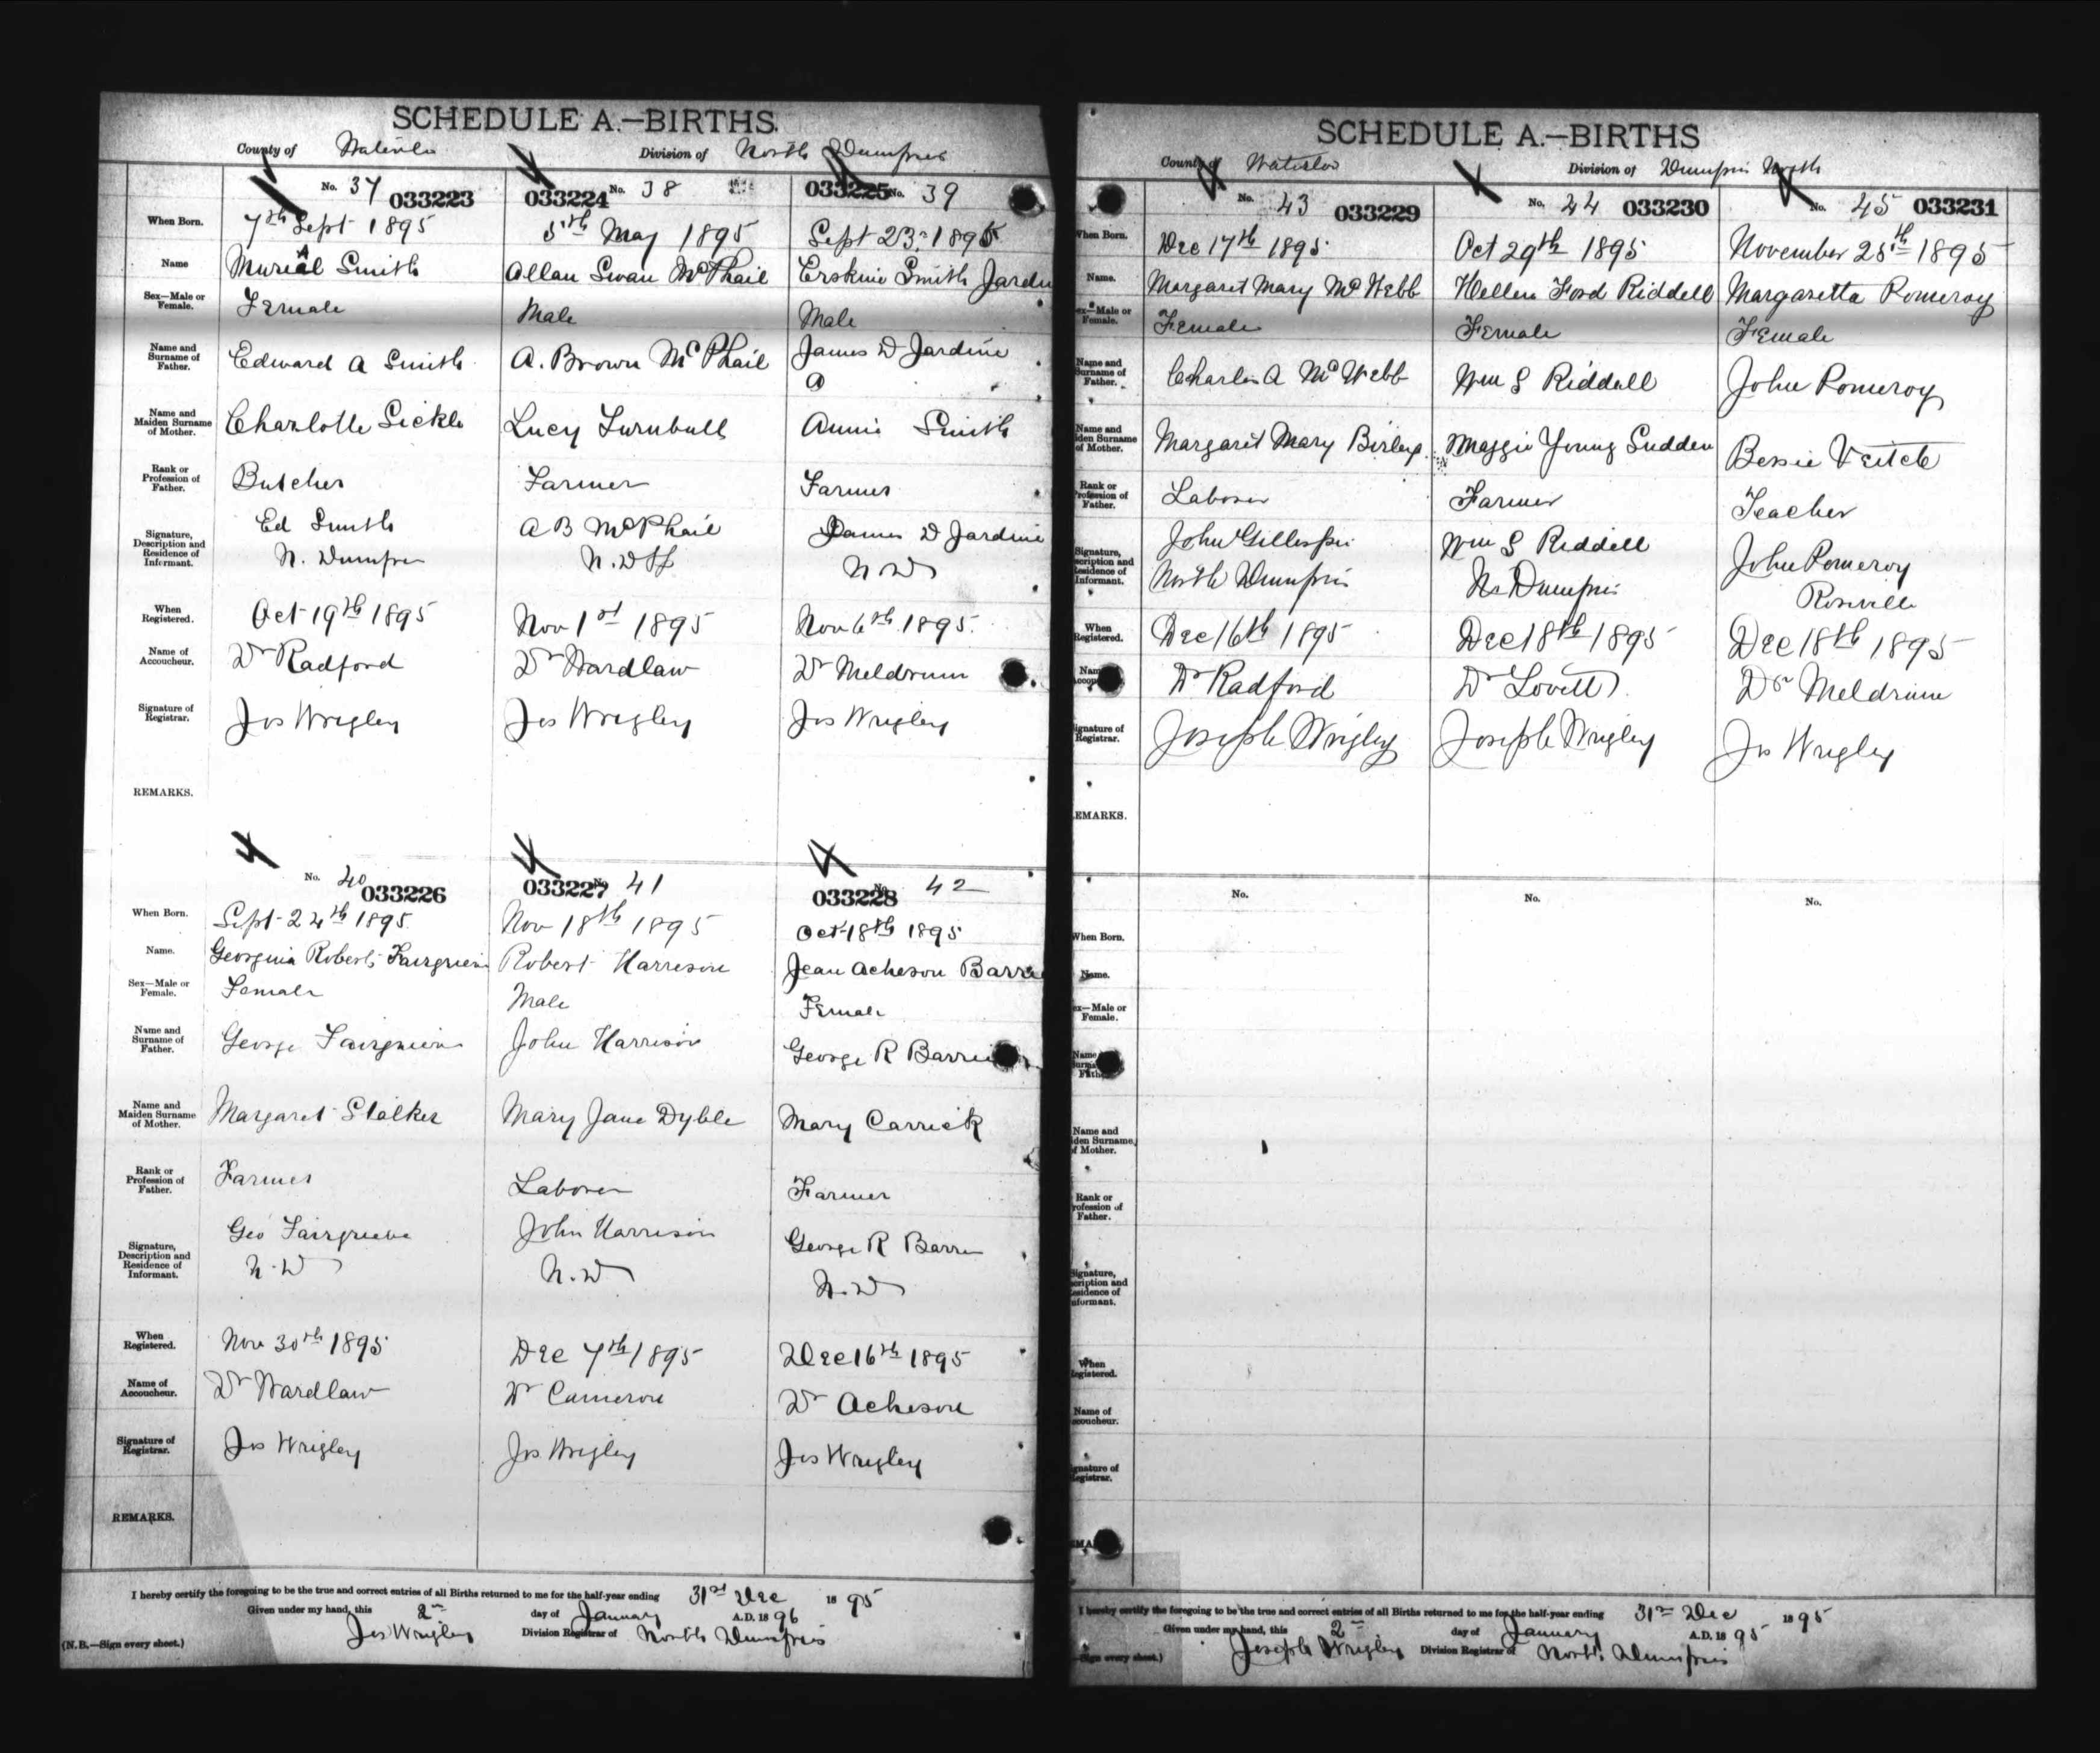 SCHEDULE A.—BIRTHS.
County of Waterloo Division of North Dumfries
No. 37 033223 033224 No. 38 033225 No. 39
When Born. 7th Sept 1895 5th May 1895 Sept 23rd 1895
Name Murial Smith Allan Swan McPhail Erskine Smith Jardin
Sex—Male or Female. Female Male Male
Name and Surname of Father. Edward A Smith A. Brown McPhail James D Jardine
A
Name and Maiden Surname of Mother. Charlotte Sickle Lucy Turnbull Annie Smith
Rank or Profession of Father. Butcher Farmer Farmer
Signature, Description and Residence of Informant. Ed Smith A B McPhail James D Jardine
N. Dumfries N. Df N D
When Registered. Oct 19th 1895 Nov 1st 1895 Nov 6th 1895.
Name of Accoucheur. Dr Radford Dr Wardlaw Dr Meldrum
Signature of Registrar. Jos Wrigley Jos Wrigley Jos Wrigley
REMARKS.
No. 40 033226 033227 No. 41 033228 No. 42
When Born. Sept 24th 1895 Nov 18th 1895 Oct 18th 1895
Name. Georginia Roberts Fairgrieve Robert Harrison Jean Acheson Barrie
Sex—Male or Female. Female Male Female
Name and Surname of Father. George Fairgrieve John Harrison George R Barrie
Name and Maiden Surname of Mother. Margaret Stalker Mary Jane Dyble Mary Carrick
Rank or Profession of Father. Farmer Laborer Farmer
Signature, Description and Residence of Informant. Geo Fairgrieve John Harrison George R Barrie
N. D N. D N. D
When Registered. Nov 30th 1895 Dec 7th 1895 Dec 16th 1895
Name of Accoucheur. Dr Wardlaw Dr Cameron Dr Acheson
Signature of Registrar. Jos Wrigley Jos Wrigley Jos Wrigley
REMARKS.
I hereby certify the foregoing to be the true and correct entries of all Births returned to me for the half-year ending 31st Dec 1895
Given under my hand, this 2nd day of January A.D. 1896
(N.B.—Sign every sheet.) Jos Wrigley Division Registrar of North Dumfries
SCHEDULE A.—BIRTHS
County of Waterloo Division of Dumfries North
No. 43 033229 No. 44 033230 No. 45 033231
When Born. Dec 17th 1895 Oct 29th 1895 November 25th 1895
Name. Margaret Mary McWebb Hellen Ford Riddell Margaretta Pomeroy
ex—Male or Female. Female Female Female
Name and Surname of Father. Charles A McWebb Wm S Riddell John Pomeroy
Name and iden Surname of Mother. Margaret Mary Birley Maggie Young Sudden Bessie Veitch
Rank or rofession of Father. Laborer Farmer Teacher
Signature, scription and Residence of Informant. John Gillespie Wm S Riddell John Pomeroy
North Dumfries No Dumfries Rosville
When Registered. Dec 16th 1895 Dec 18th 1895 Dec 18th 1895
Nam Accou Dr Radford Dr Lovett Dr Meldrum
ignature of Registrar. Joseph Wrigley Joseph Wrigley Jos Wrigley
EMARKS.
No. No. No.
When Born.
Name.
ex—Male or Female.
Name Surna Fath
Name and iden Surname of Mother.
Rank or rofession of Father.
Signature, scription and esidence of nformant.
When egistered.
Name of ccoucheur.
gnature of egistrar.
EMA
I hereby certify the foregoing to be the true and correct entries of all Births returned to me for the half-year ending 31st Dec 1895
Given under my hand, this 2nd day of January A.D. 1895
—Sign every sheet.) Joseph Wrigley Division Registrar of North Dumfries